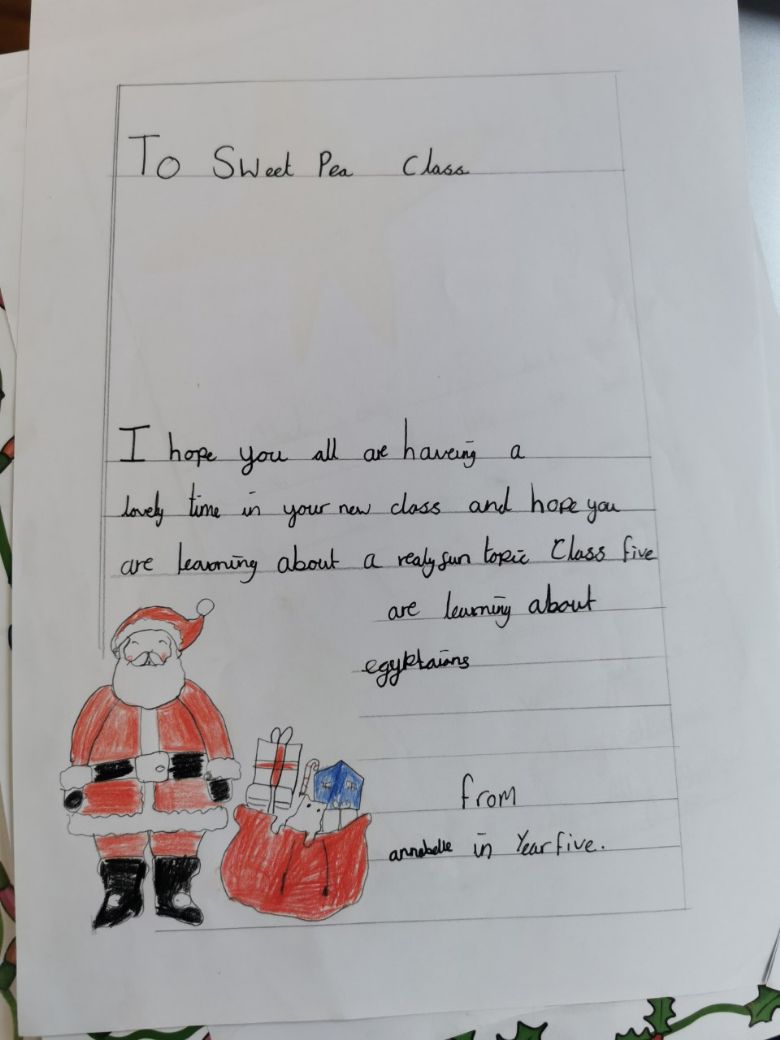 To Sweet Pea Class
I hope you all are haveing a
lovely time in your new class and hope you
are learning about a realy fun topic Class five
are learning about
egyptaians
from
annabelle in Year five.